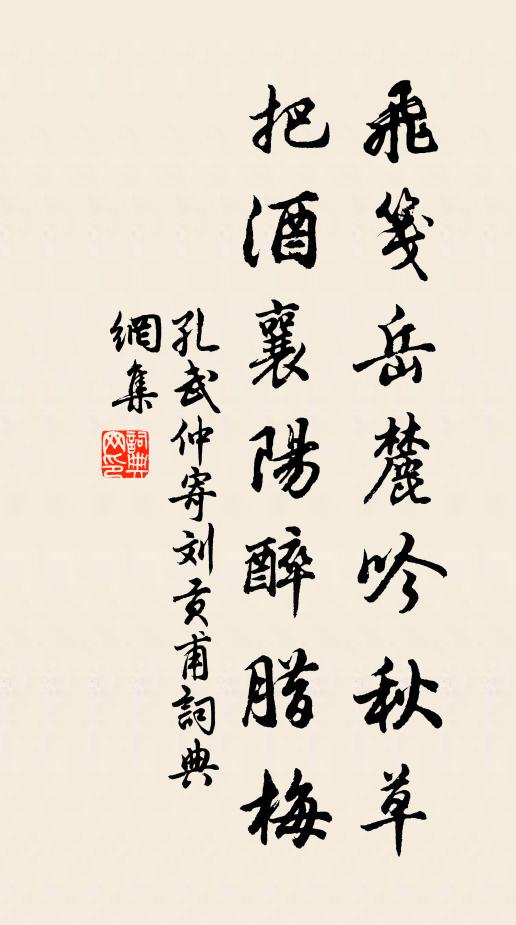 飛箋岳麓吟秋草
把酒襄陽醉腊梅
孔武仲寄刘貢甫詞典
網集
詞典
网印